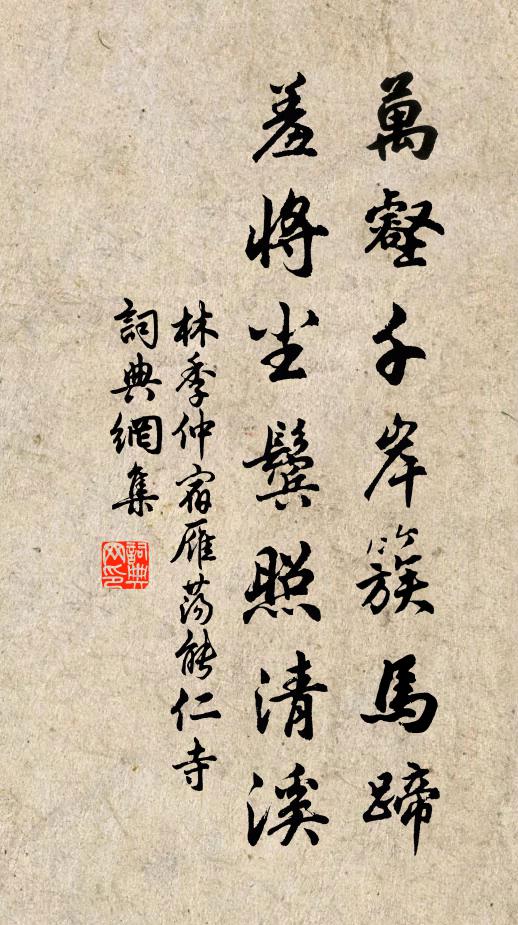 萬壑千岸簇馬蹄
羞將尘鬓照清溪
林季仲宿雁荡能仁寺
詞典網集
詞典網印